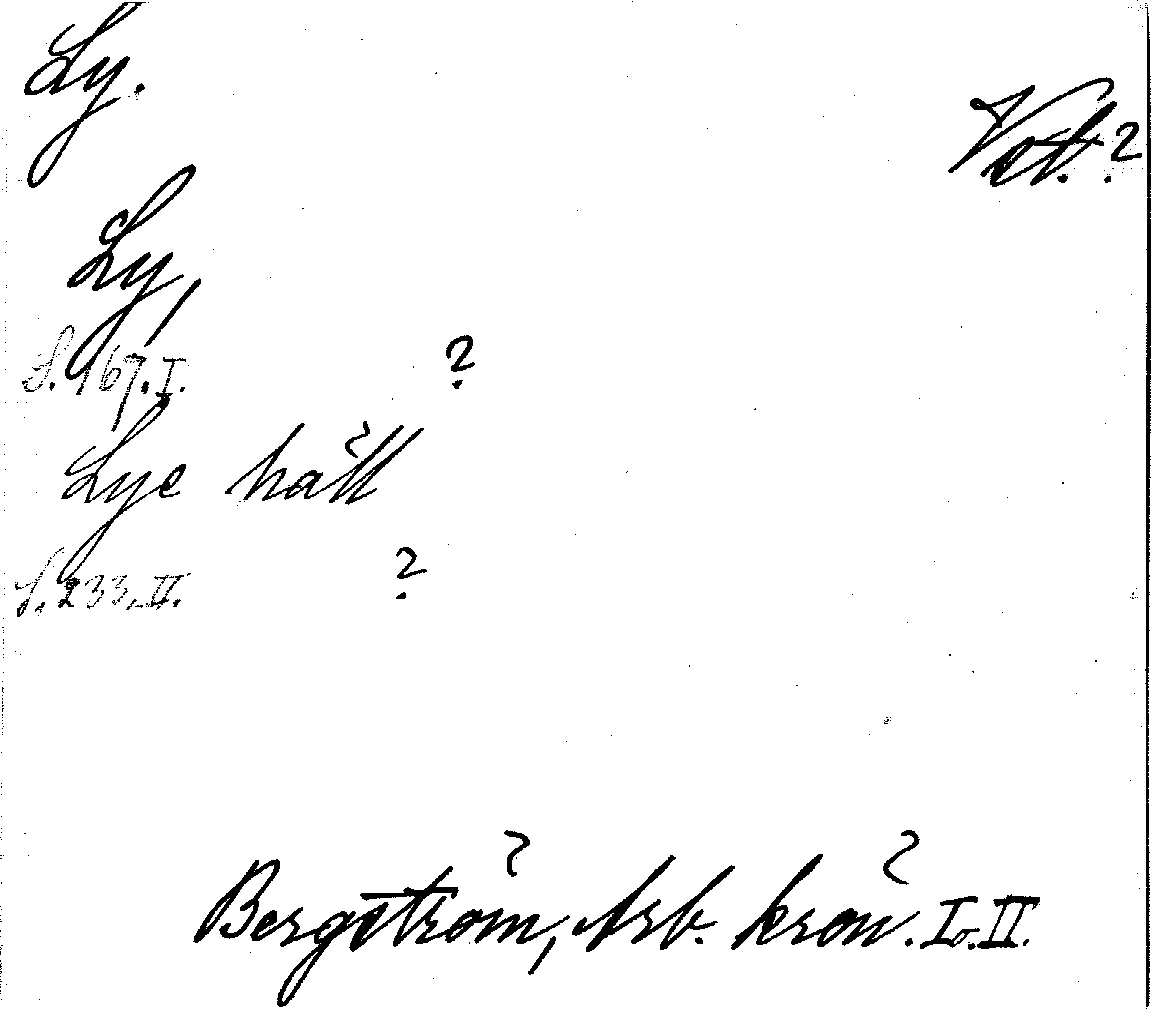 Ly.
Vet.?
Ly,
S. 167. I.
?
Lye häll
S. 233, II.
?
Bergström, Arb. krön. I o. II.